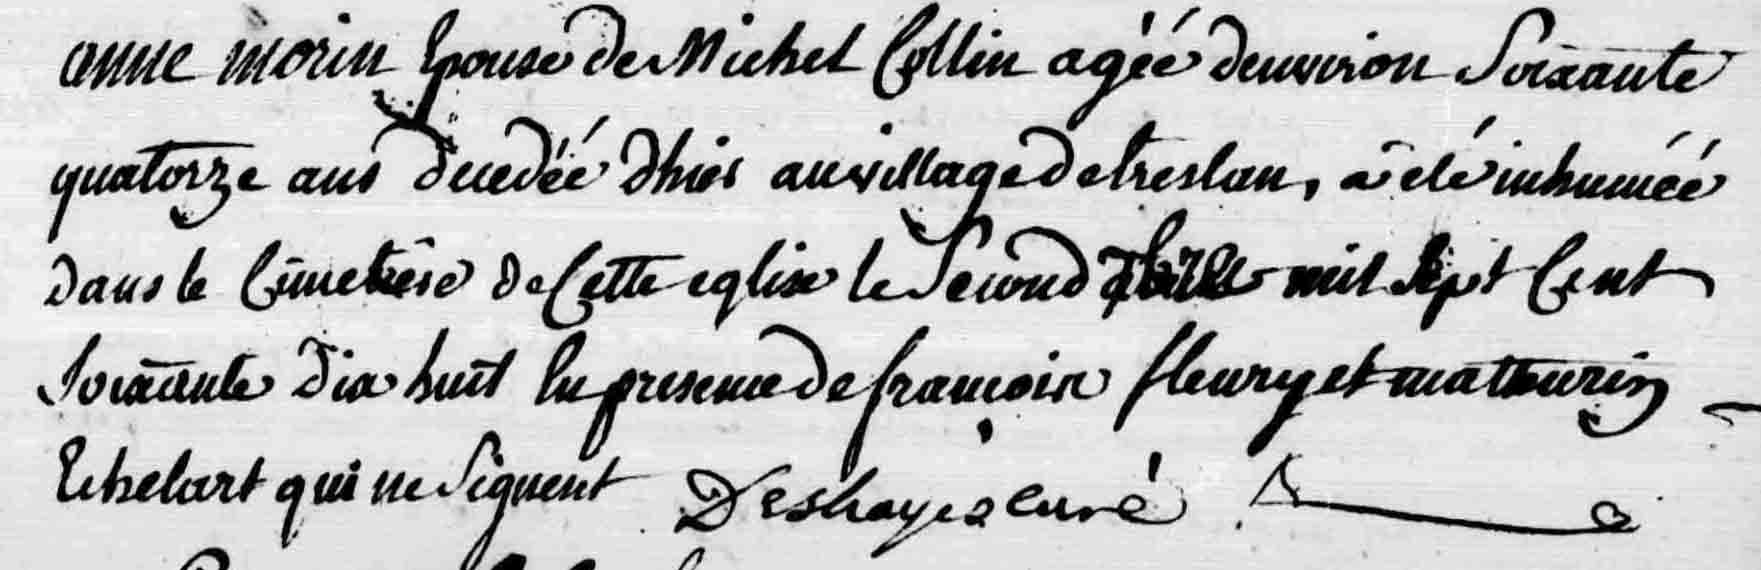 anne morin Epouse de Michel Collin agéé denviron Soixante
quatorze ans decedéé dhier au village de treslan, a eté inhuméé
dans le Cimetiere de Cette eglise le Second mil Sept Cent
Soixante dix huit En presence de françois fleury et mathurin
Echelart qui ne Signent Deshayes curé